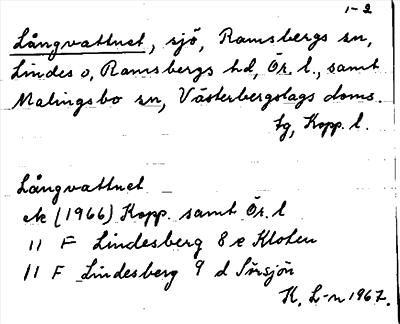 1-2
Långvattnet, sjö, Ramsbergs sn,
Lindes o, Ramsbergs hd, Ör. l., samt
Malingsbo sn, Västerbergslags doms.
tg, Kopp. l.
Långvattnet
ek (1966) Kopp. samt Ör. l
11 F Lindesberg 8 e Kloten
11 F Lindesberg 9 d
K. L-n 1967.